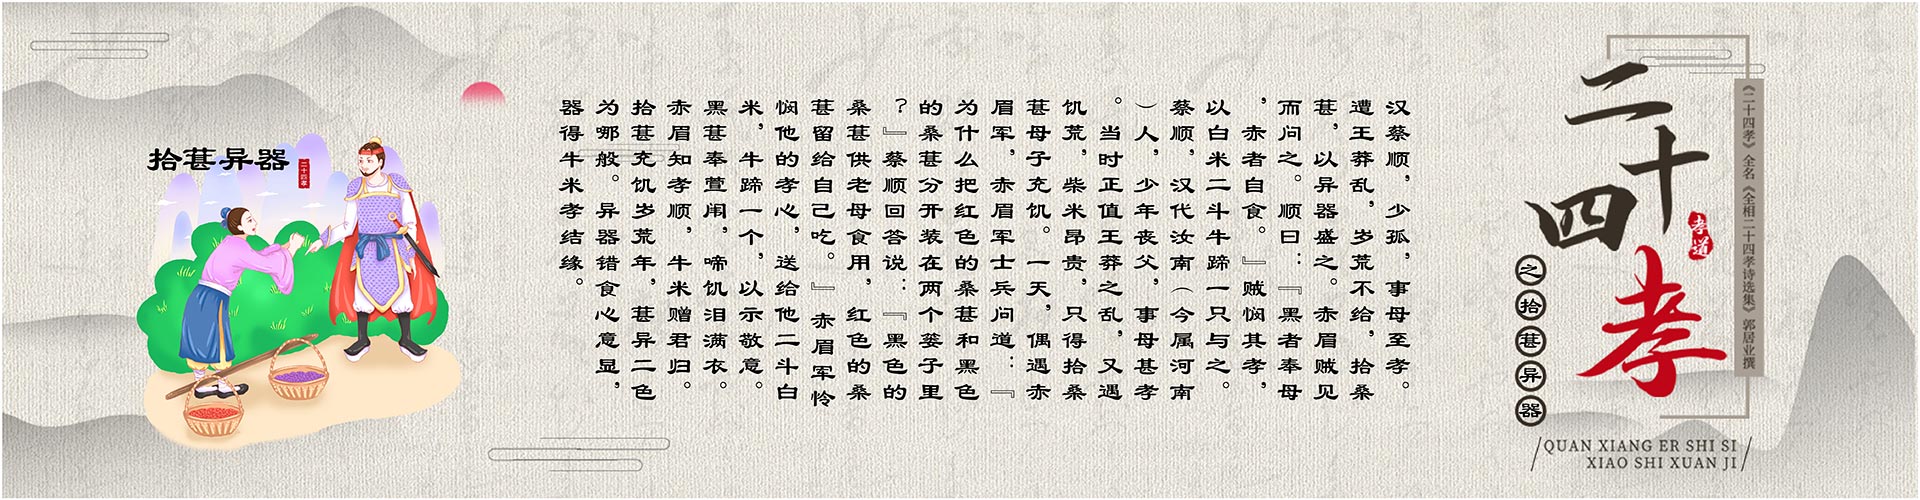 《二十四孝》全名《全相二十四孝诗选集》郭居业撰
二十四孝
孝道
之拾葚异器
QUAN XIANG ER SHI SI
XIAO SHI XUAN JI
汉蔡顺，少孤，事母至孝。
遭王莽乱，岁荒不给，拾桑
葚，以异器盛之。赤眉贼见
而问之。顺曰：『黑者奉母
，赤者自食。』贼悯其孝，
以白米二斗牛蹄一只与之。
蔡顺，汉代汝南（今属河南
）人，少年丧父，事母甚孝
。当时正值王莽之乱，又遇
饥荒，柴米昂贵，只得拾桑
葚母子充饥。一天，偶遇赤
眉军，赤眉军士兵问道：『
为什么把红色的桑葚和黑色
的桑葚分开装在两个篓子里
？』蔡顺回答说：『黑色的
桑葚供老母食用，红色的桑
葚留给自己吃。』赤眉军怜
悯他的孝心，送给他二斗白
米，牛蹄一个，以示敬意。
黑葚奉萱闱，啼饥泪满衣。
赤眉知孝顺，牛米赠君归。
拾葚充饥岁荒年，葚异二色
为哪般。异器错食心意显，
器得牛米孝结缘。
拾葚异器
二十四孝